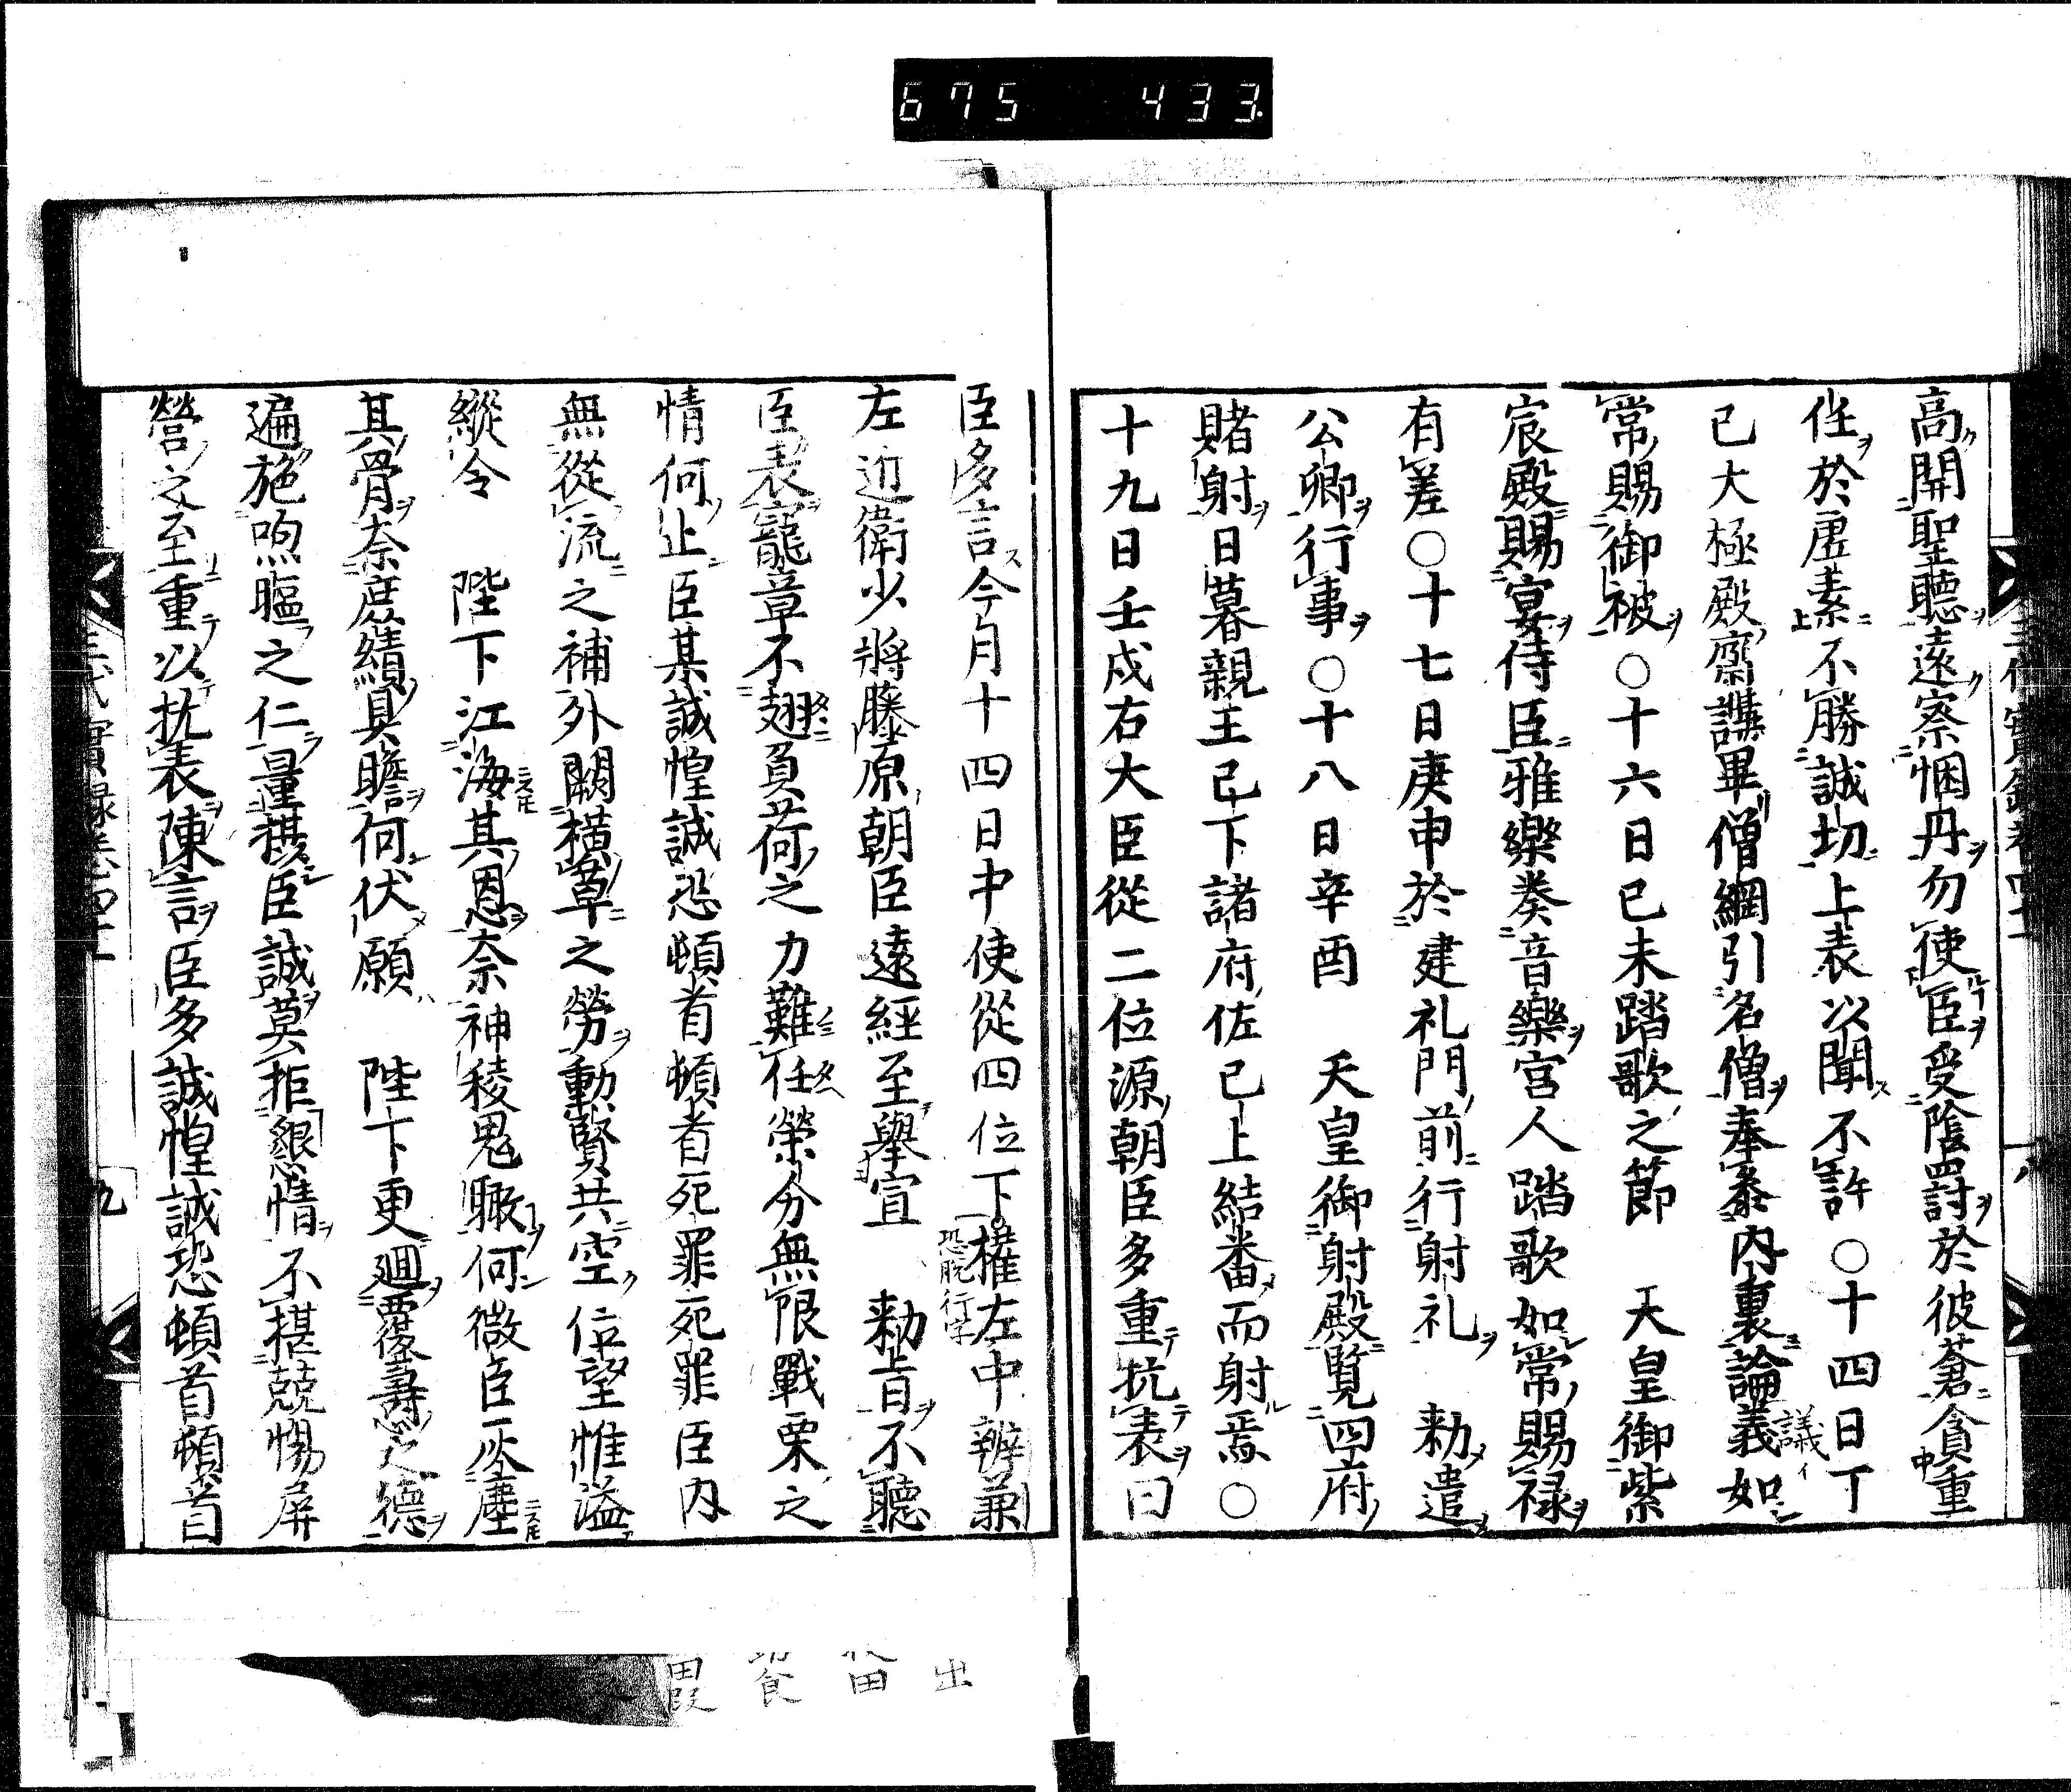 675 433
高開聖聽遠察悃丹勿使臣受陰罸於彼蒼貪重
任於虛素不勝誠切上表以聞不許○十四日丁
已大極殿齋講畢僧綱引名僧奉參內裏論義如
議イ
常賜御被○十六日已未踏歌之節 天皇御紫
宸殿賜宴侍臣雅樂奏音樂宮人踏歌如常賜祿
有差○十七日庚申於建礼門前行射礼 勅遣
公卿行事○十八日辛酉 天皇御射殿覽四府
賭射日暮親王已下諸府佐已上結番而射焉○
十九日壬戌右大臣從二位源朝臣多重抗表曰
臣多言今月十四日中使從四位下權左中辨兼
恐脫行字
左近衛少將藤原朝臣遠經至舉宣 勅旨不聽
臣表寵章不翅負荷之力難任榮分無限戰栗之
情何止臣某誠惶誠恐頓首頓首死罪死罪臣內
無從流之補外闕橫草之勞動賢共空位望惟溢
縱令 陛下江海其恩奈神稜鬼瞰何微臣塵
其骨奈庶績具瞻何伏願 陛下更廻覆壽之德
遍施呴嫗之仁量棋臣誠莫拒懇情不堪兢惕屏
營之至重以抗表陳言臣多誠惶誠恐頓首頓首
九